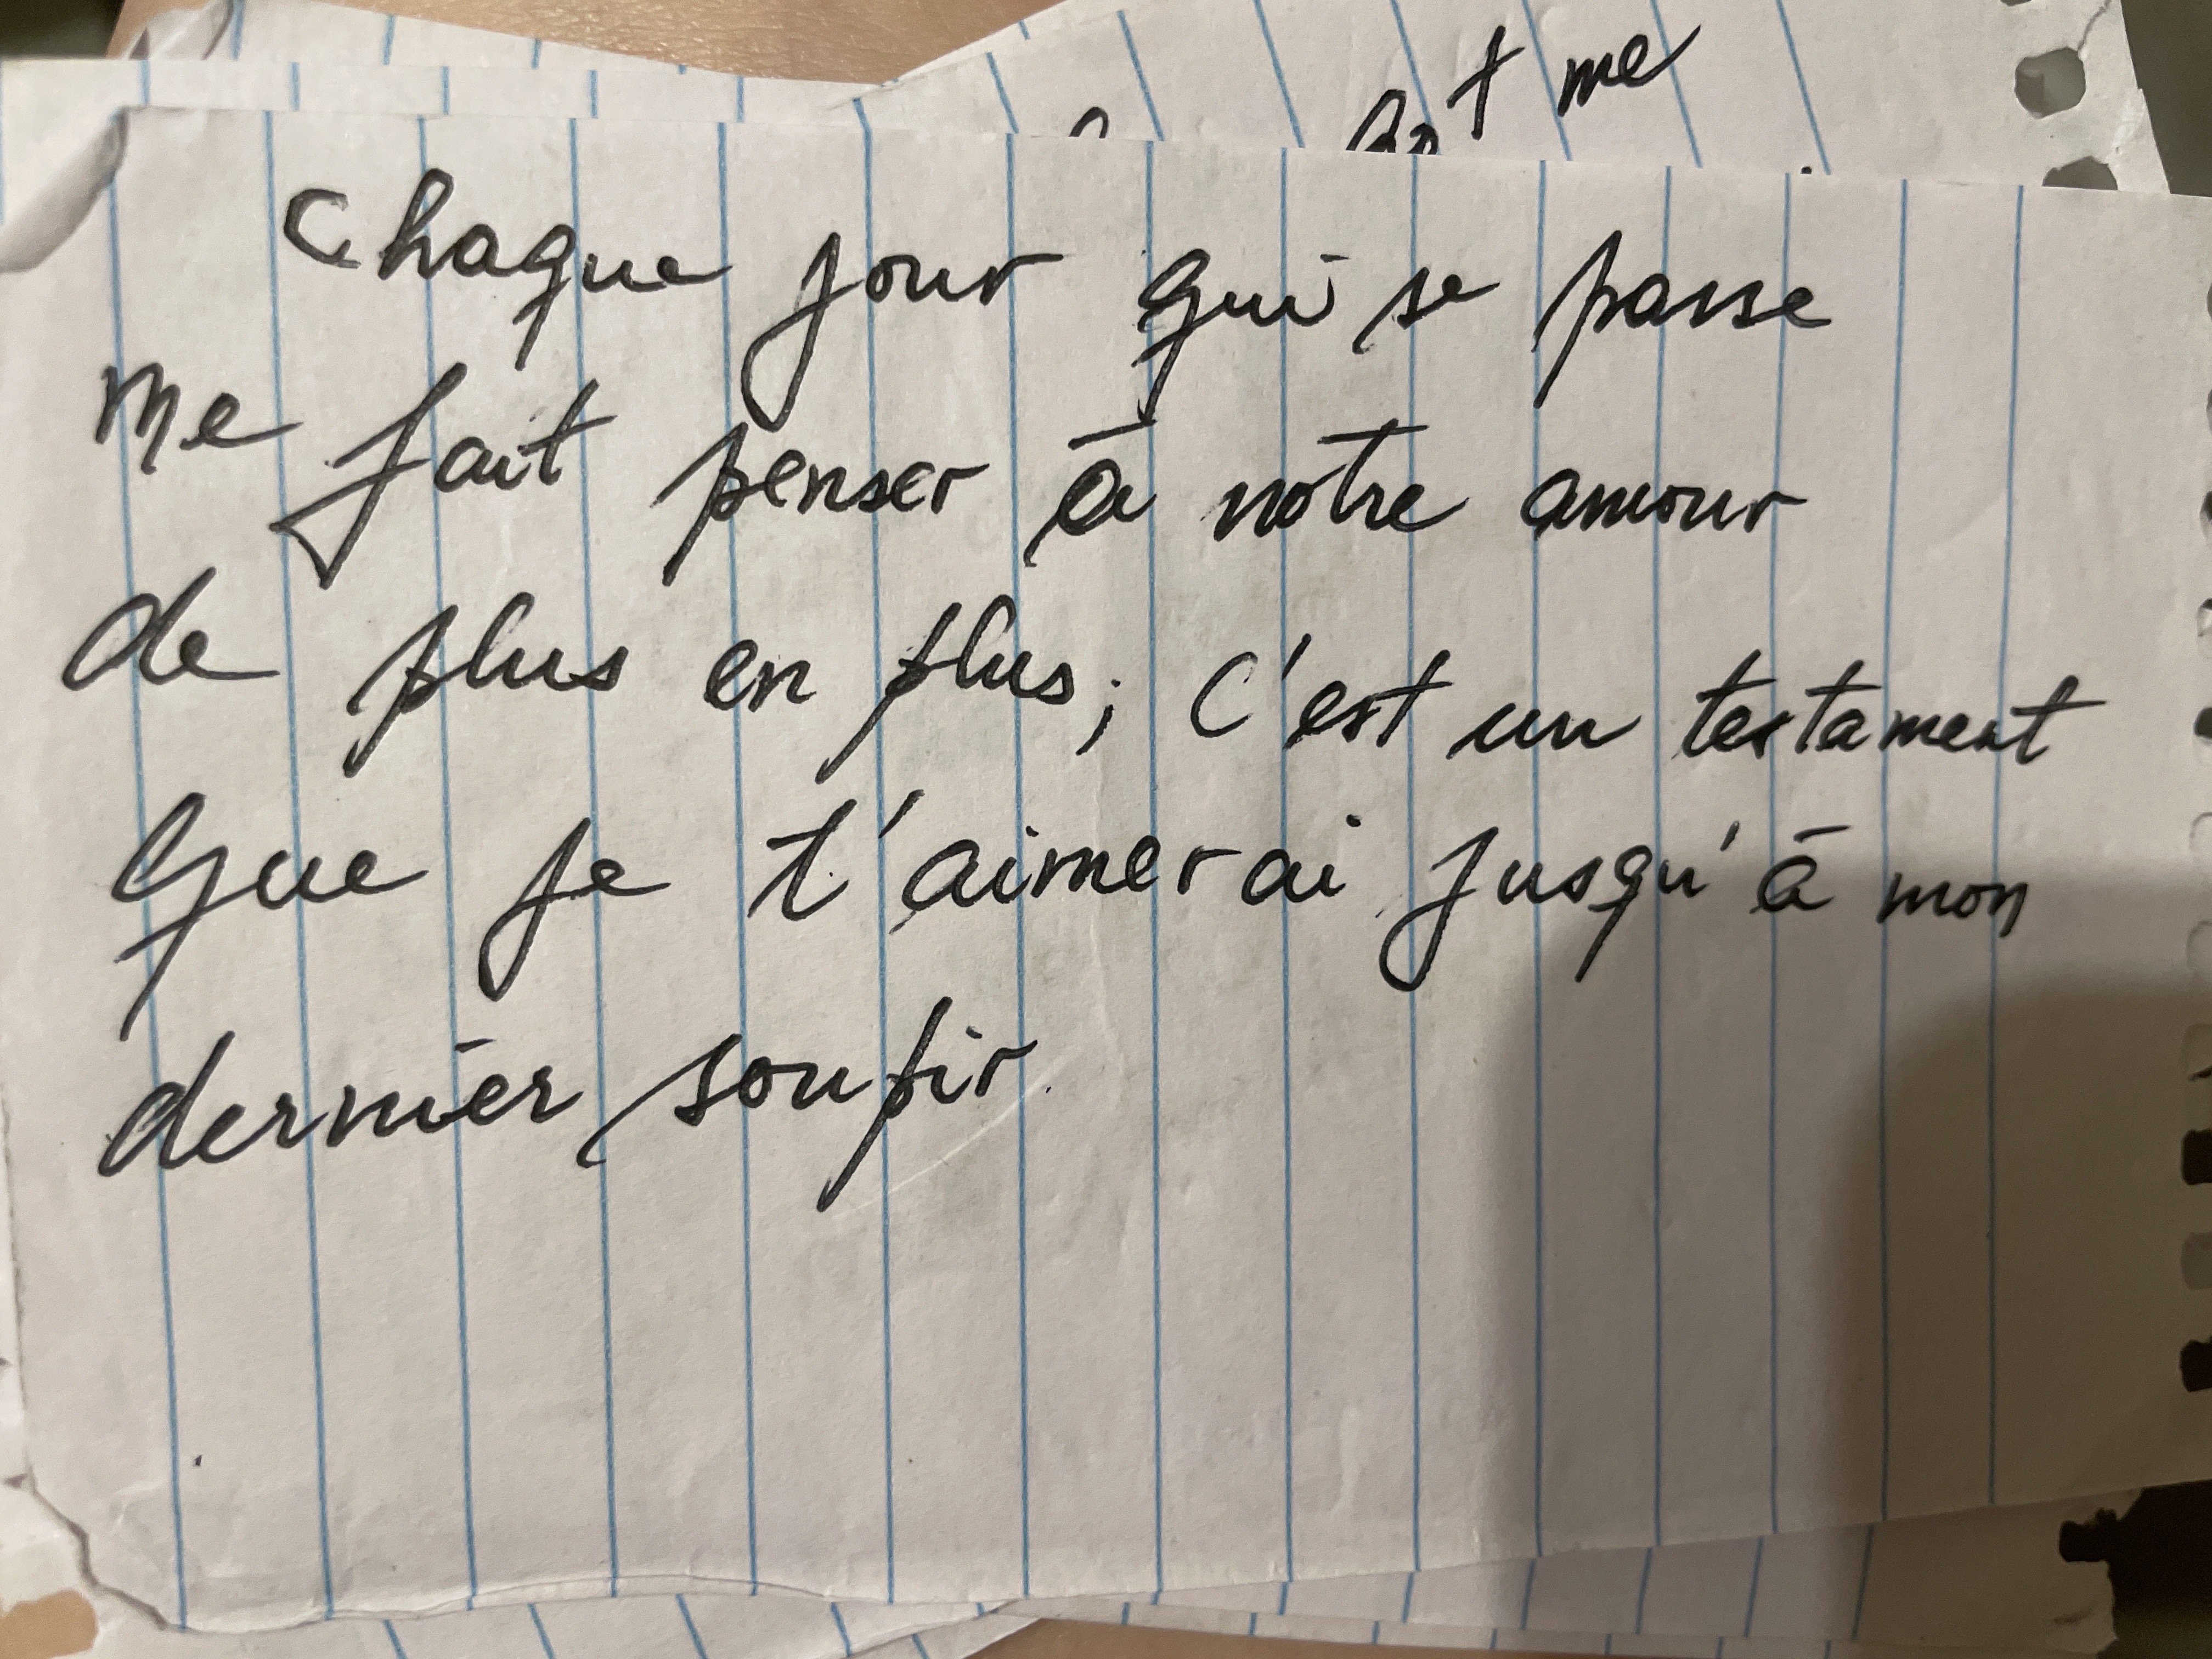 Chaque jour qui se passe
Me fait penser à notre amour
de plus en plus; C'est un testament
Que je t'aimerai jusqu'à mon
dernier soupir.
me